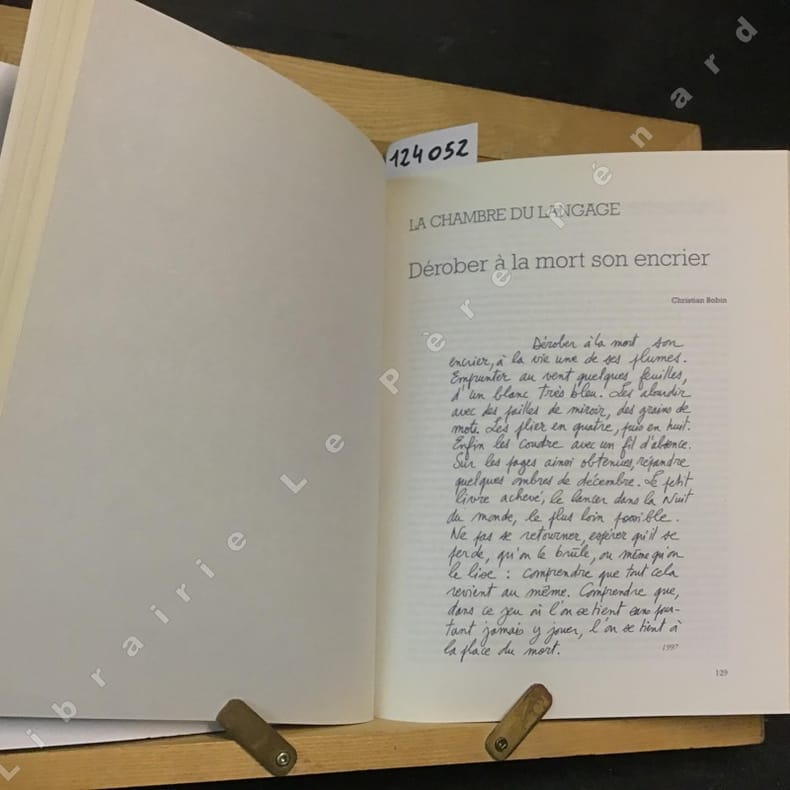 124052
LA CHAMBRE DU LANGAGE
Dérober à la mort son encrier
Christian Bobin
Dérober à la mort son
encrier, à la vie une de ses plumes.
Emprunter au vent quelques feuilles,
d'un blanc très bleu. Les alourdir
avec des pailles de miroir, des grains de
mots. Les plier en quatre, puis en huit.
Enfin les coudre avec un fil d'absence.
Sur les pages ainsi obtenues, répandre
quelques ombres de décembre. Le petit
livre achevé, le lancer dans la Nuit
du monde, le plus loin possible.
Ne pas se retourner, espérer qu'il se
perde, qu'on le brûle, ou même qu'on
le lise : comprendre que tout cela
revient au même. Comprendre que,
dans ce jeu où l'on se tient sans pour-
tant jamais y jouer, l'on se tient à
la place du mort.
1997
129
Librairie Le Père Pénard